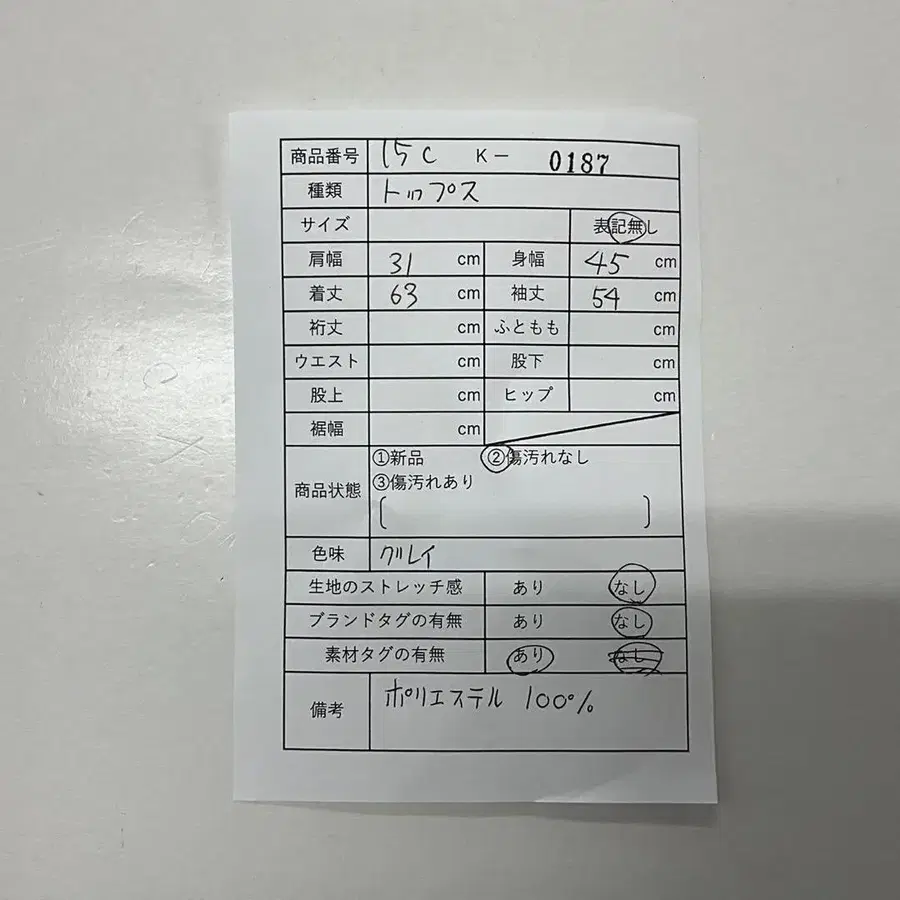 商品番号 15C K- 0187
種類 トップス
サイズ 表記無し
肩幅 31 cm 身幅 45 cm
着丈 63 cm 袖丈 54 cm
裄丈 cm ふともも cm
ウエスト cm 股下 cm
股上 cm ヒップ cm
裾幅 cm
①新品 ②傷汚れなし
商品状態 ③傷汚れあり
( )
色味 グレイ
生地のストレッチ感 あり なし
ブランドタグの有無 あり なし
素材タグの有無 あり なし
備考 ポリエステル 100%